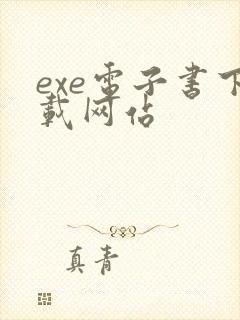 exe電子書下
載网佔
真青